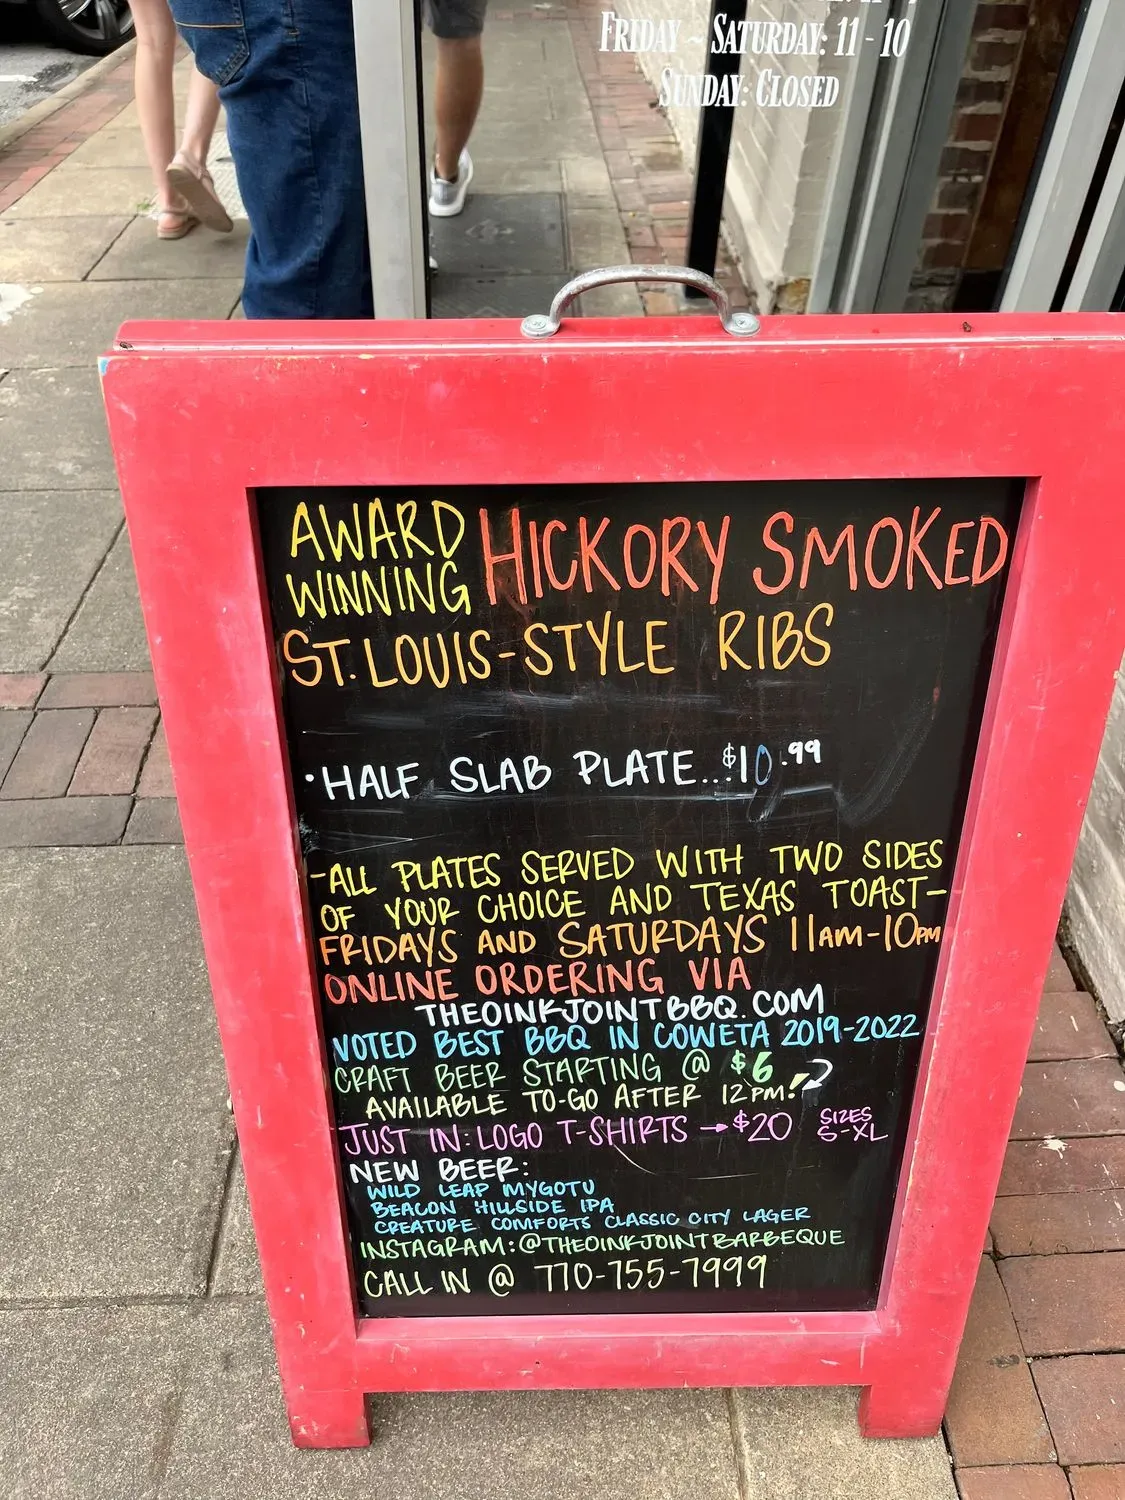 FRIDAY ~ SATURDAY: 11 - 10
SUNDAY: CLOSED
AWARD
WINNING
HICKORY SMOKED
ST. LOUIS-STYLE RIBS
·HALF SLAB PLATE...$10.99
-ALL PLATES SERVED WITH TWO SIDES
OF YOUR CHOICE AND TEXAS TOAST-
FRIDAYS AND SATURDAYS 11AM-10PM
ONLINE ORDERING VIA
THEOINKJOINTBBQ.COM
VOTED BEST BBQ IN COWETA 2019-2022
CRAFT BEER STARTING @ $6
AVAILABLE TO-GO AFTER 12PM!
JUST IN: LOGO T-SHIRTS → $20 SIZES
S-XL
NEW BEER:
WILD LEAP MYGOTU
BEACON HILLSIDE IPA
CREATURE COMFORTS CLASSIC CITY LAGER
INSTAGRAM: @THEOINKJOINTBARBEQUE
CALL IN @ 770-755-7999